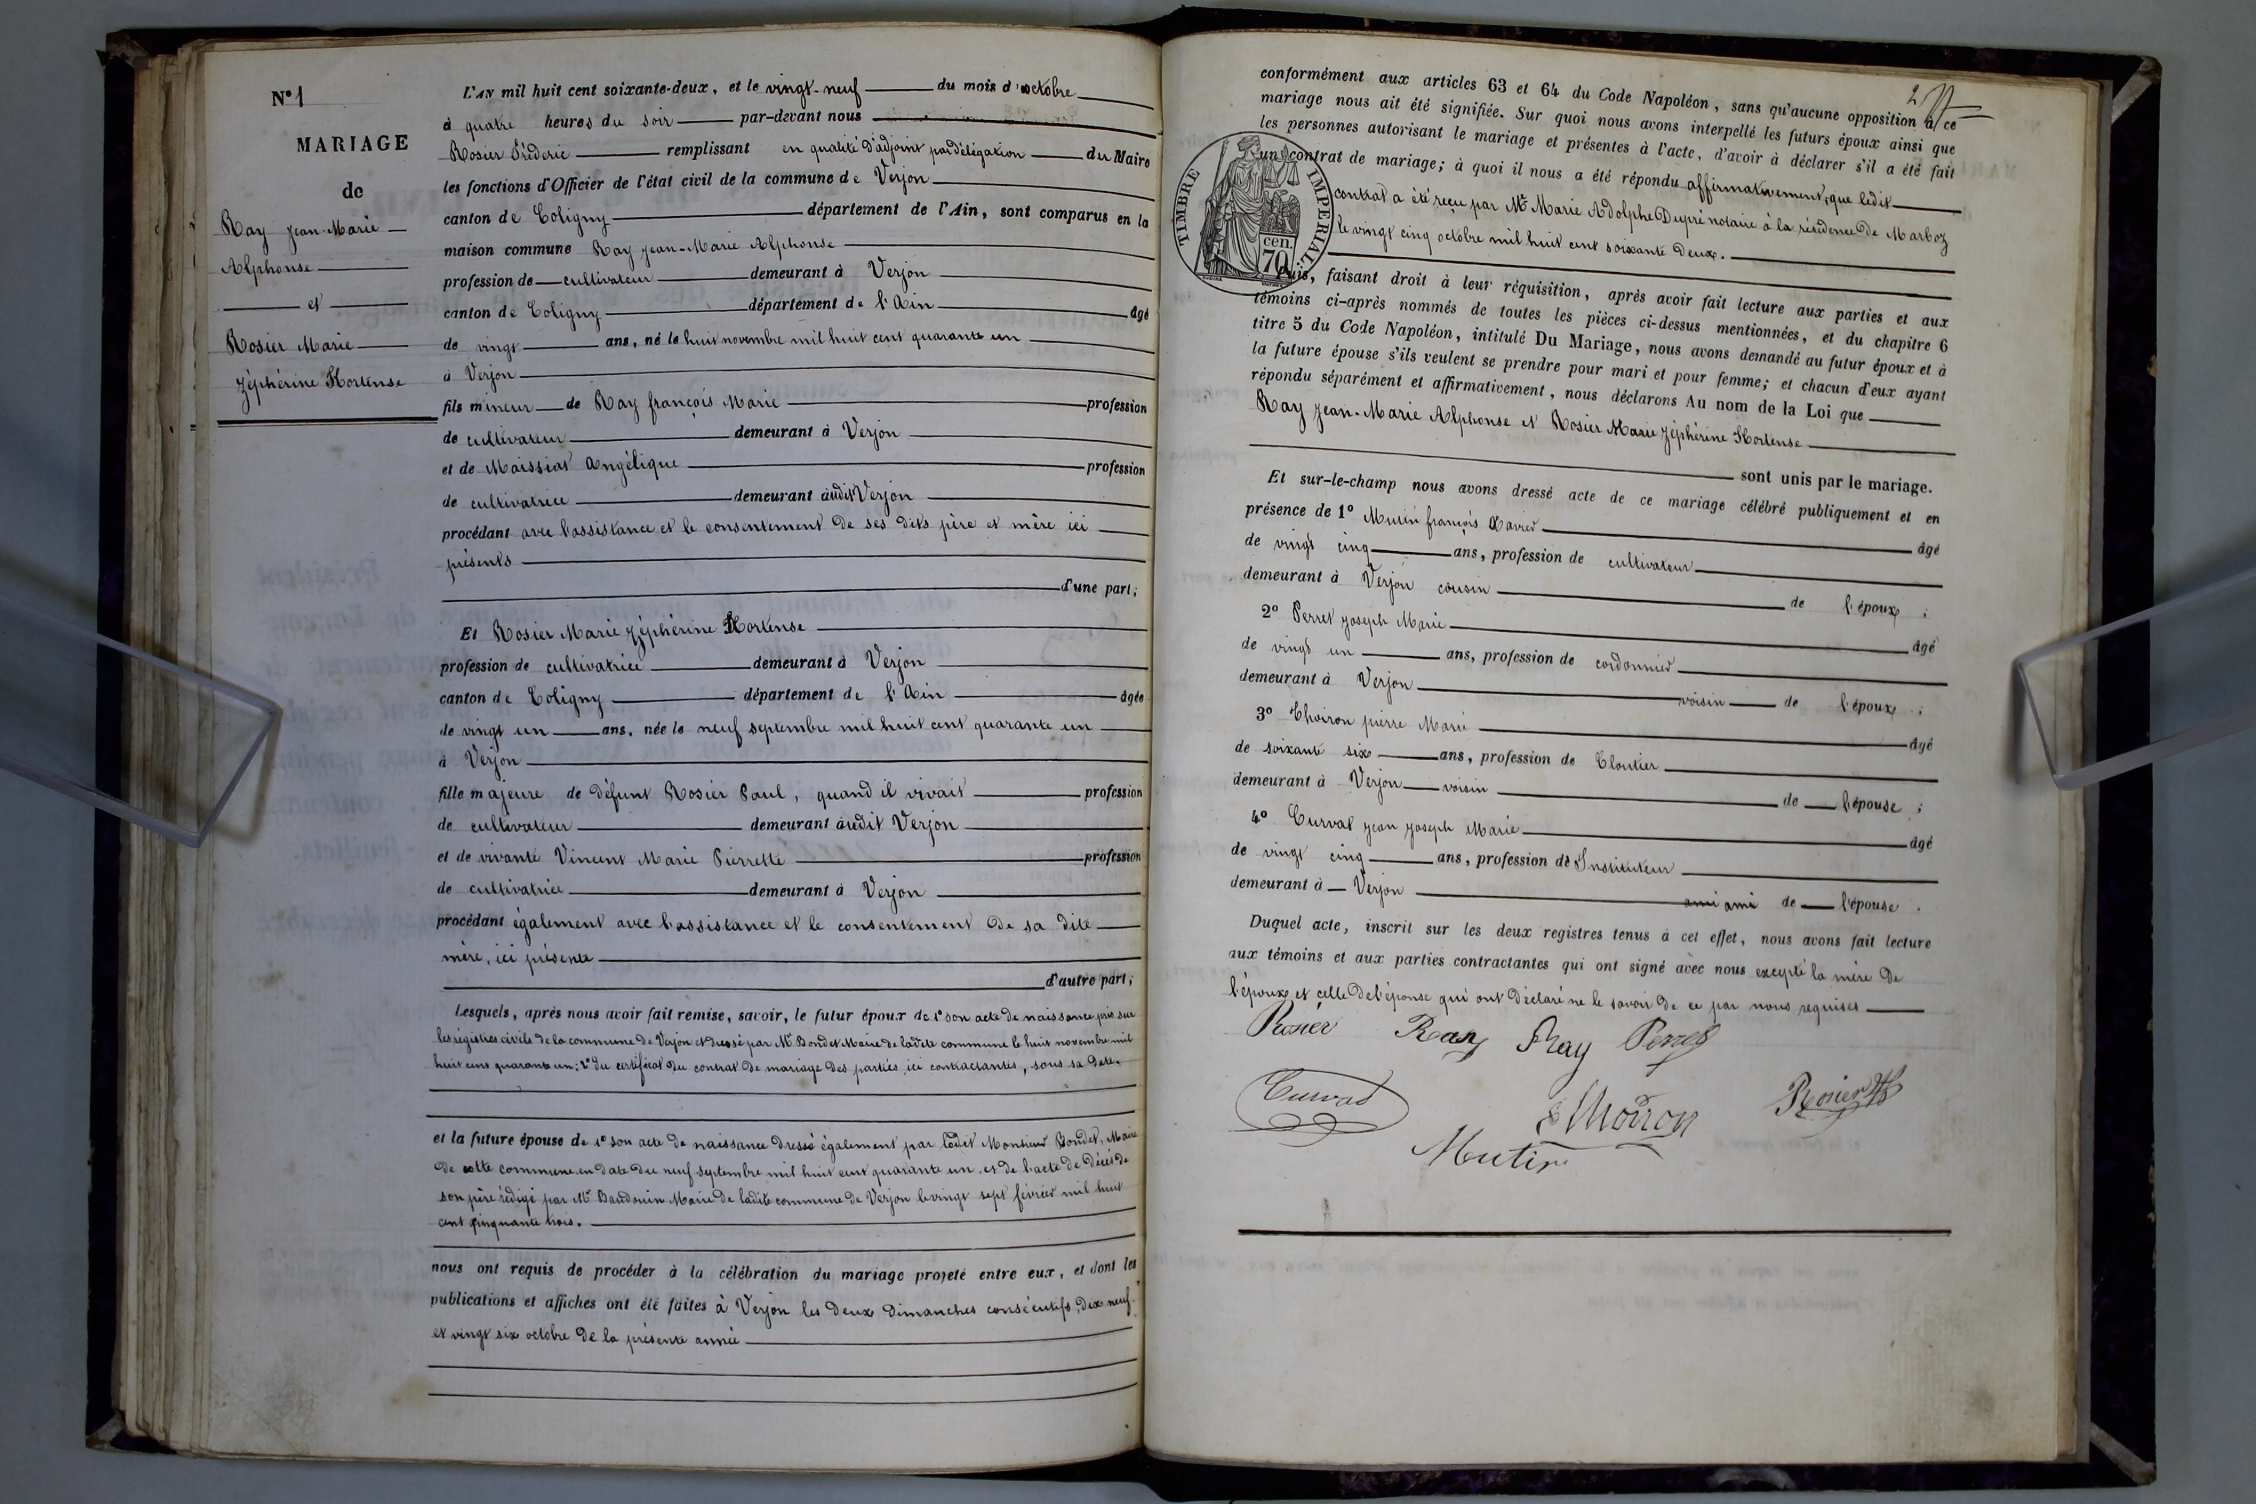 N° 1
MARIAGE
de
Ray Jean-Marie
Alphonse
et
Rosier Marie
Zéphérine Hortense
L'AN mil huit cent soixante-deux, et le vingt-neuf du mois d'octobre
à quatre heures du soir par-devant nous
Rosier Fréderic remplissant en qualité d'adjoint par délégation du Maire
les fonctions d'Officier de l'état civil de la commune de Verjon
canton de Coligny département de l'Ain, sont comparus en la
maison commune Ray Jean-Marie Alphonse
profession de cultivateur demeurant à Verjon
canton de Coligny département de l'Ain âgé
de vingt ans, né le huit novembre mil huit cent quarante un
à Verjon
fils mineur de Ray françois Marie profession
de cultivateur demeurant à Verjon
et de Moissiat Angélique profession
de cultivatrice demeurant audit Verjon
procédant avec l'assistance et le consentement de ses dits père et mère ici
présents
d'une part;
Et Rosier Marie Zéphérine Hortense
profession de cultivatrice demeurant à Verjon
canton de Coligny département de l'Ain âgée
de vingt un ans, née le neuf septembre mil huit cent quarante un
à Verjon
fille majeure de défunt Rosier Paul, quand il vivait profession
de cultivateur demeurant audit Verjon
et de vivante Vincent Marie Pierrette profession
de cultivatrice demeurant à Verjon
procédant également avec l'assistance et le consentement de sa dite
mère, ici présente
d'autre part;
Lesquels, après nous avoir fait remise, savoir, le futur époux de 1° son acte de naissance pris sur
les régistres civils de la commune de Verjon et dressé par Mr Bondet Maire de ladite commune le huit novembre mil
huit cent quarante un; 2° du certificat du contrat de mariage des parties ici contractantes, sous sa date.
et la future épouse de 1° son acte de naissance dressé également par ledit Monsieur Bondet, Maire
de cette commune en date du neuf septembre mil huit cent quarante un, et de l'acte de décès de
son père rédigé par Mr Baudouin Maire de ladite commune de Verjon le vingt sept février mil huit
cent cinquante trois.
nous ont requis de procéder à la célébration du mariage projeté entre eux, et dont les
publications et affiches ont été faites à Verjon les deux dimanches consécutifs, dix neuf
et vingt six octobre de la présente année
2
conformément aux articles 63 et 64 du Code Napoléon, sans qu'aucune opposition à ce
mariage nous ait été signifiée. Sur quoi nous avons interpellé les futurs époux ainsi que
les personnes autorisant le mariage et présentes à l'acte, d'avoir à déclarer s'il a été fait
un contrat de mariage; à quoi il nous a été répondu affirmativement, que ledit
contrat a été reçu par Me Marie Adolphe Dupré notaire à la résidence de Marboz
le vingt cinq octobre mil huit cent soixante deux.
TIMBRE IMPERIAL
cen.
70
Puis, faisant droit à leur réquisition, après avoir fait lecture aux parties et aux
témoins ci-après nommés de toutes les pièces ci-dessus mentionnées, et du chapitre 6
titre 5 du Code Napoléon, intitulé Du Mariage, nous avons demandé au futur époux et à
la future épouse s'ils veulent se prendre pour mari et pour femme; et chacun d'eux ayant
répondu séparément et affirmativement, nous déclarons Au nom de la Loi que
Ray Jean-Marie Alphonse et Rosier Marie Zéphérine Hortense
sont unis par le mariage.
Et sur-le-champ nous avons dressé acte de ce mariage célébré publiquement et en
présence de 1° Mutin françois Xavier âgé
de vingt cinq ans, profession de cultivateur
demeurant à Verjon cousin de l'époux;
2° Perret Joseph Marie âgé
de vingt un ans, profession de cordonnier
demeurant à Verjon voisin de l'époux;
3° Thoiron pierre Marie âgé
de soixante six ans, profession de Cloutier
demeurant à Verjon voisin de l'épouse;
4° Curvat Jean Joseph Marie âgé
de vingt cinq ans, profession de Instituteur
demeurant à Verjon ami ami de l'épouse.
Duquel acte, inscrit sur les deux registres tenus à cet effet, nous avons fait lecture
aux témoins et aux parties contractantes qui ont signé avec nous excepté la mère de
l'époux et celle de l'épouse qui ont déclaré ne le savoir de ce par nous requises
Rosier Ray Ray Perret
Curvat Thoiron Rosier
Mutin